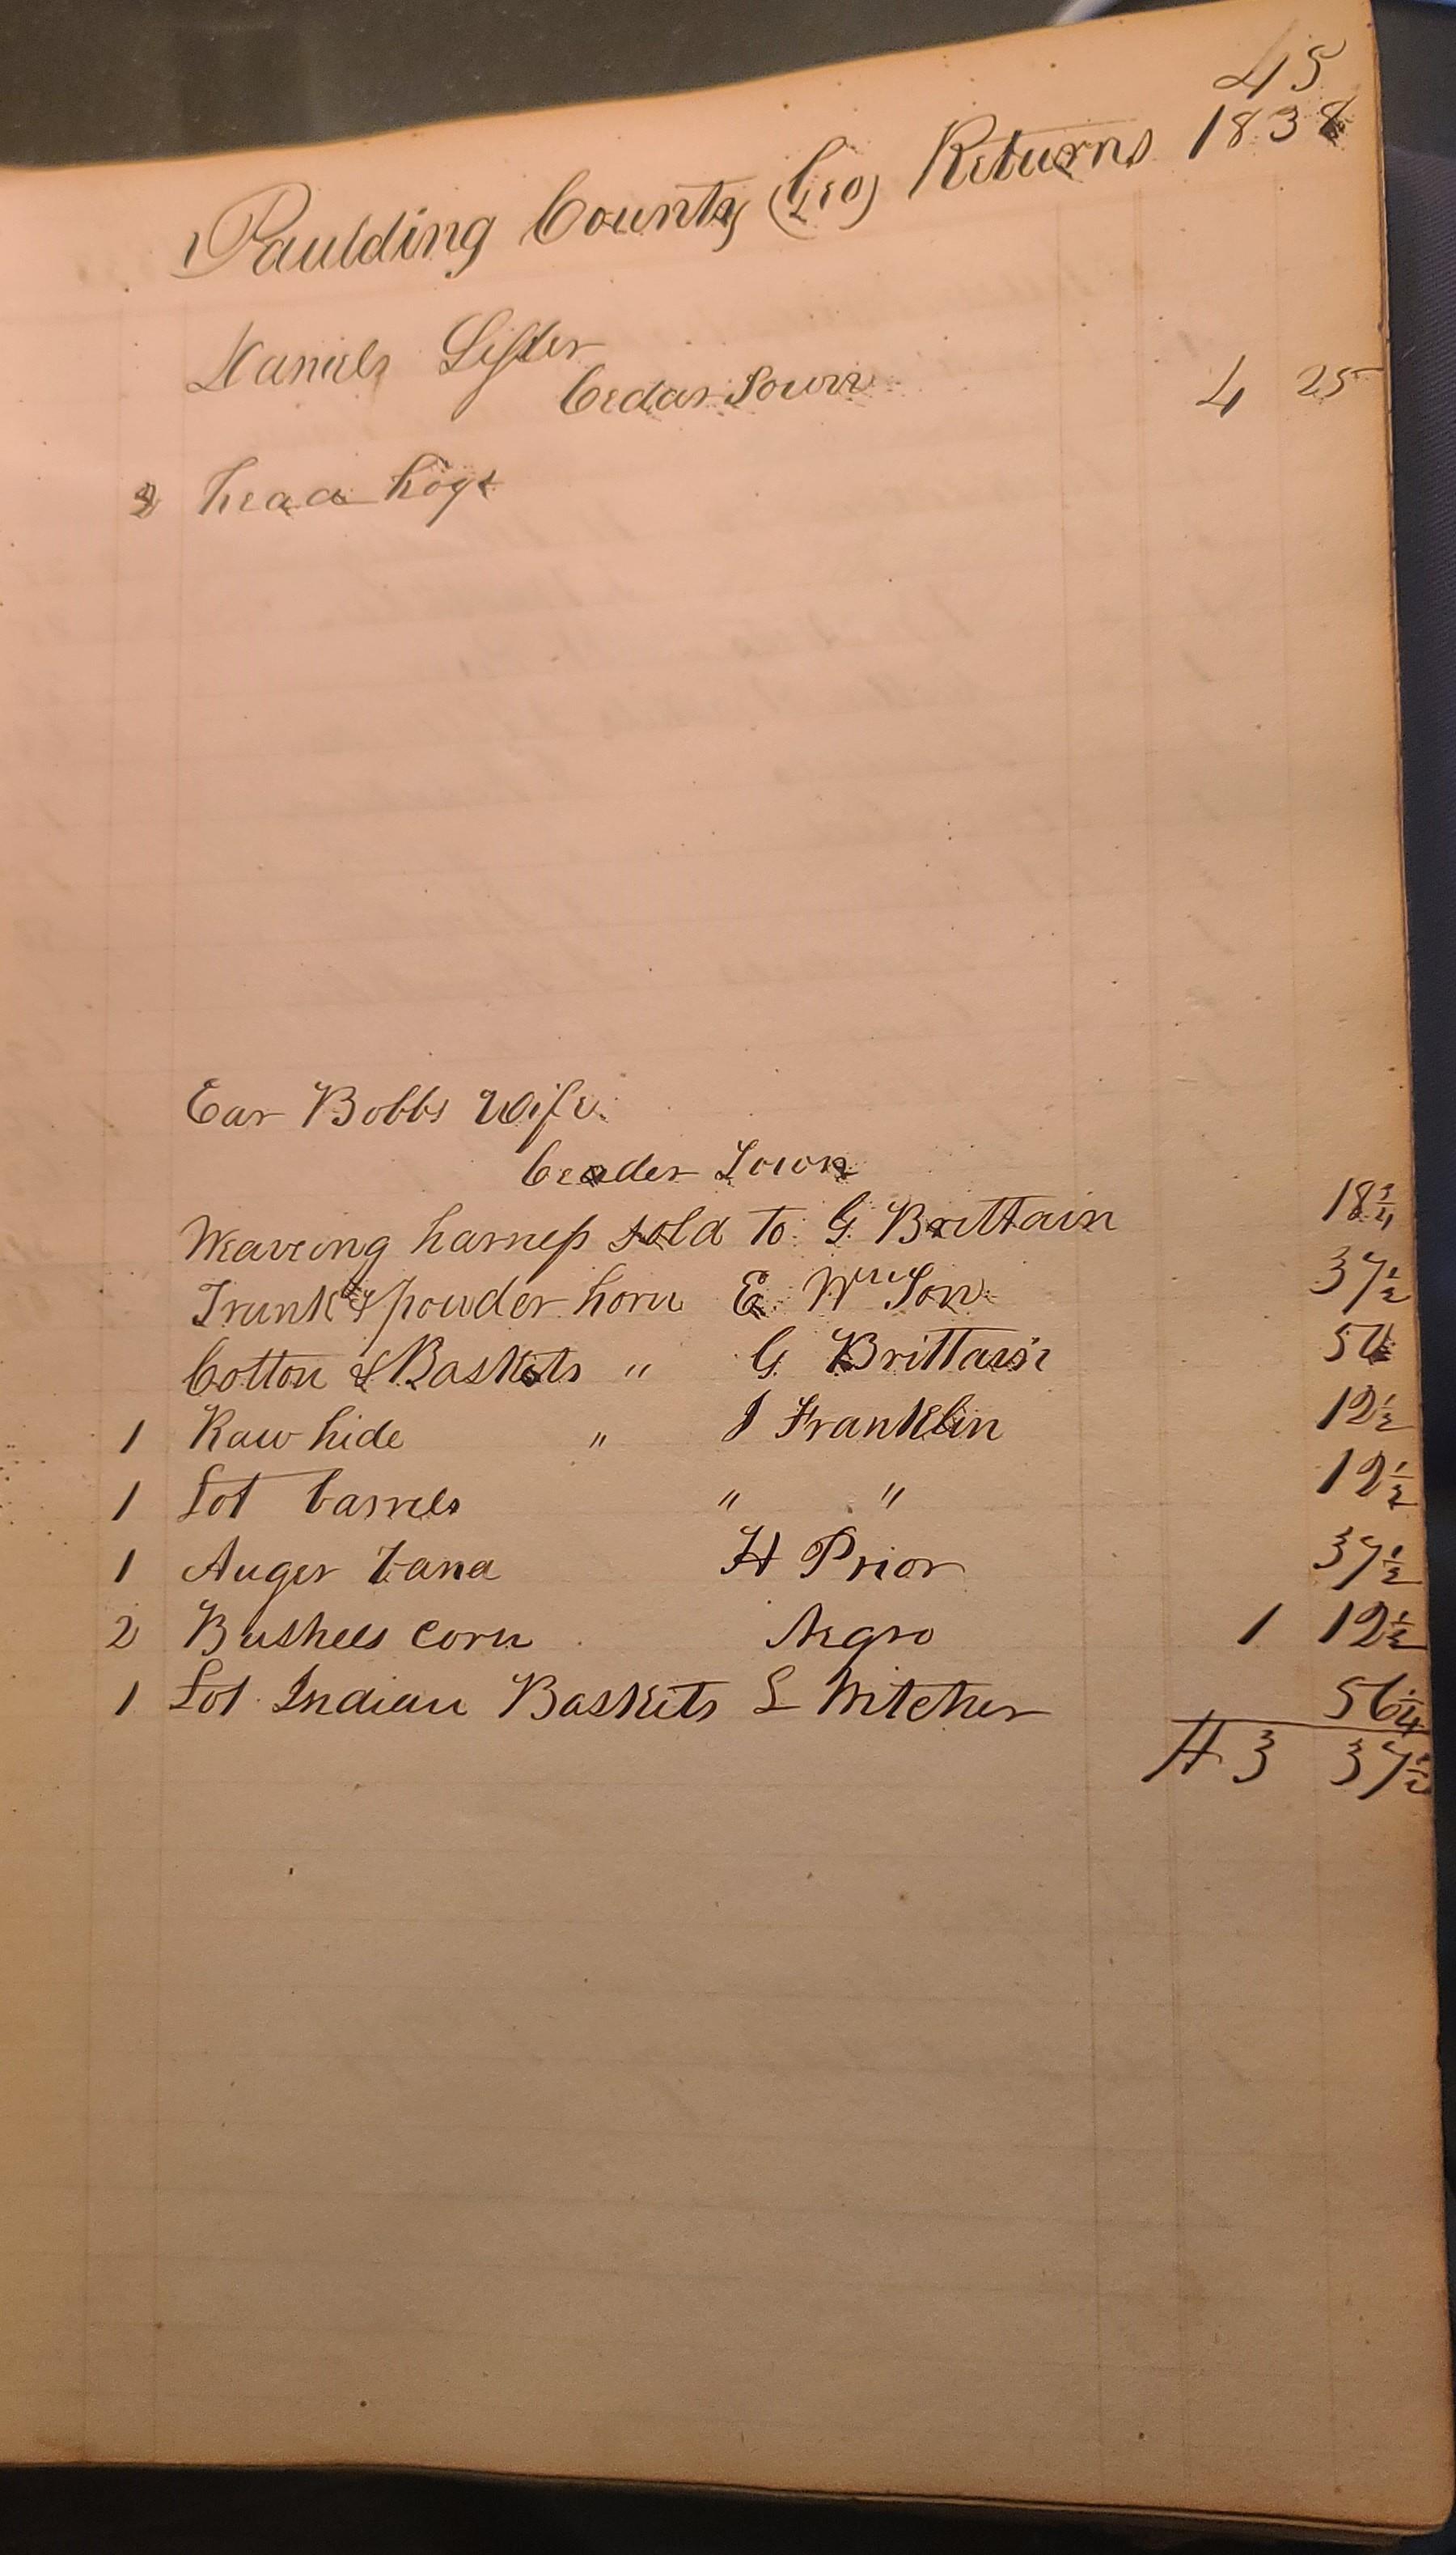 45
Paulding County (Geo) Returns 1838
Daniels Sister
Cedar Town 4 25
2 head hogs
Ear Bobbs Wife
Ceader Town
Weaveing harness sold to G. Brittain 18¾
Trunk & powder horn E. 37½
Cotton & Baskets " G Brittain 50
1 Raw hide " J Franklin 12½
1 Lot barrels " " 12½
1 Auger & and H Prior 37½
2 Bushels corn Negro 1 12½
1 Lot Indian Baskets L Witcher 56¼
3 37½